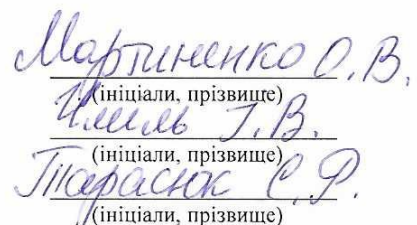 Мартиненко О.В.
(ініціали, прізвище)
І.В.
(ініціали, прізвище)
Тарасюк С.Р.
(ініціали, прізвище)